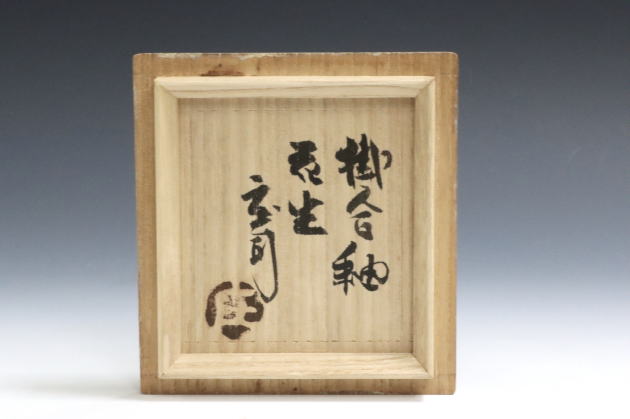 掛合釉
花生
庄司